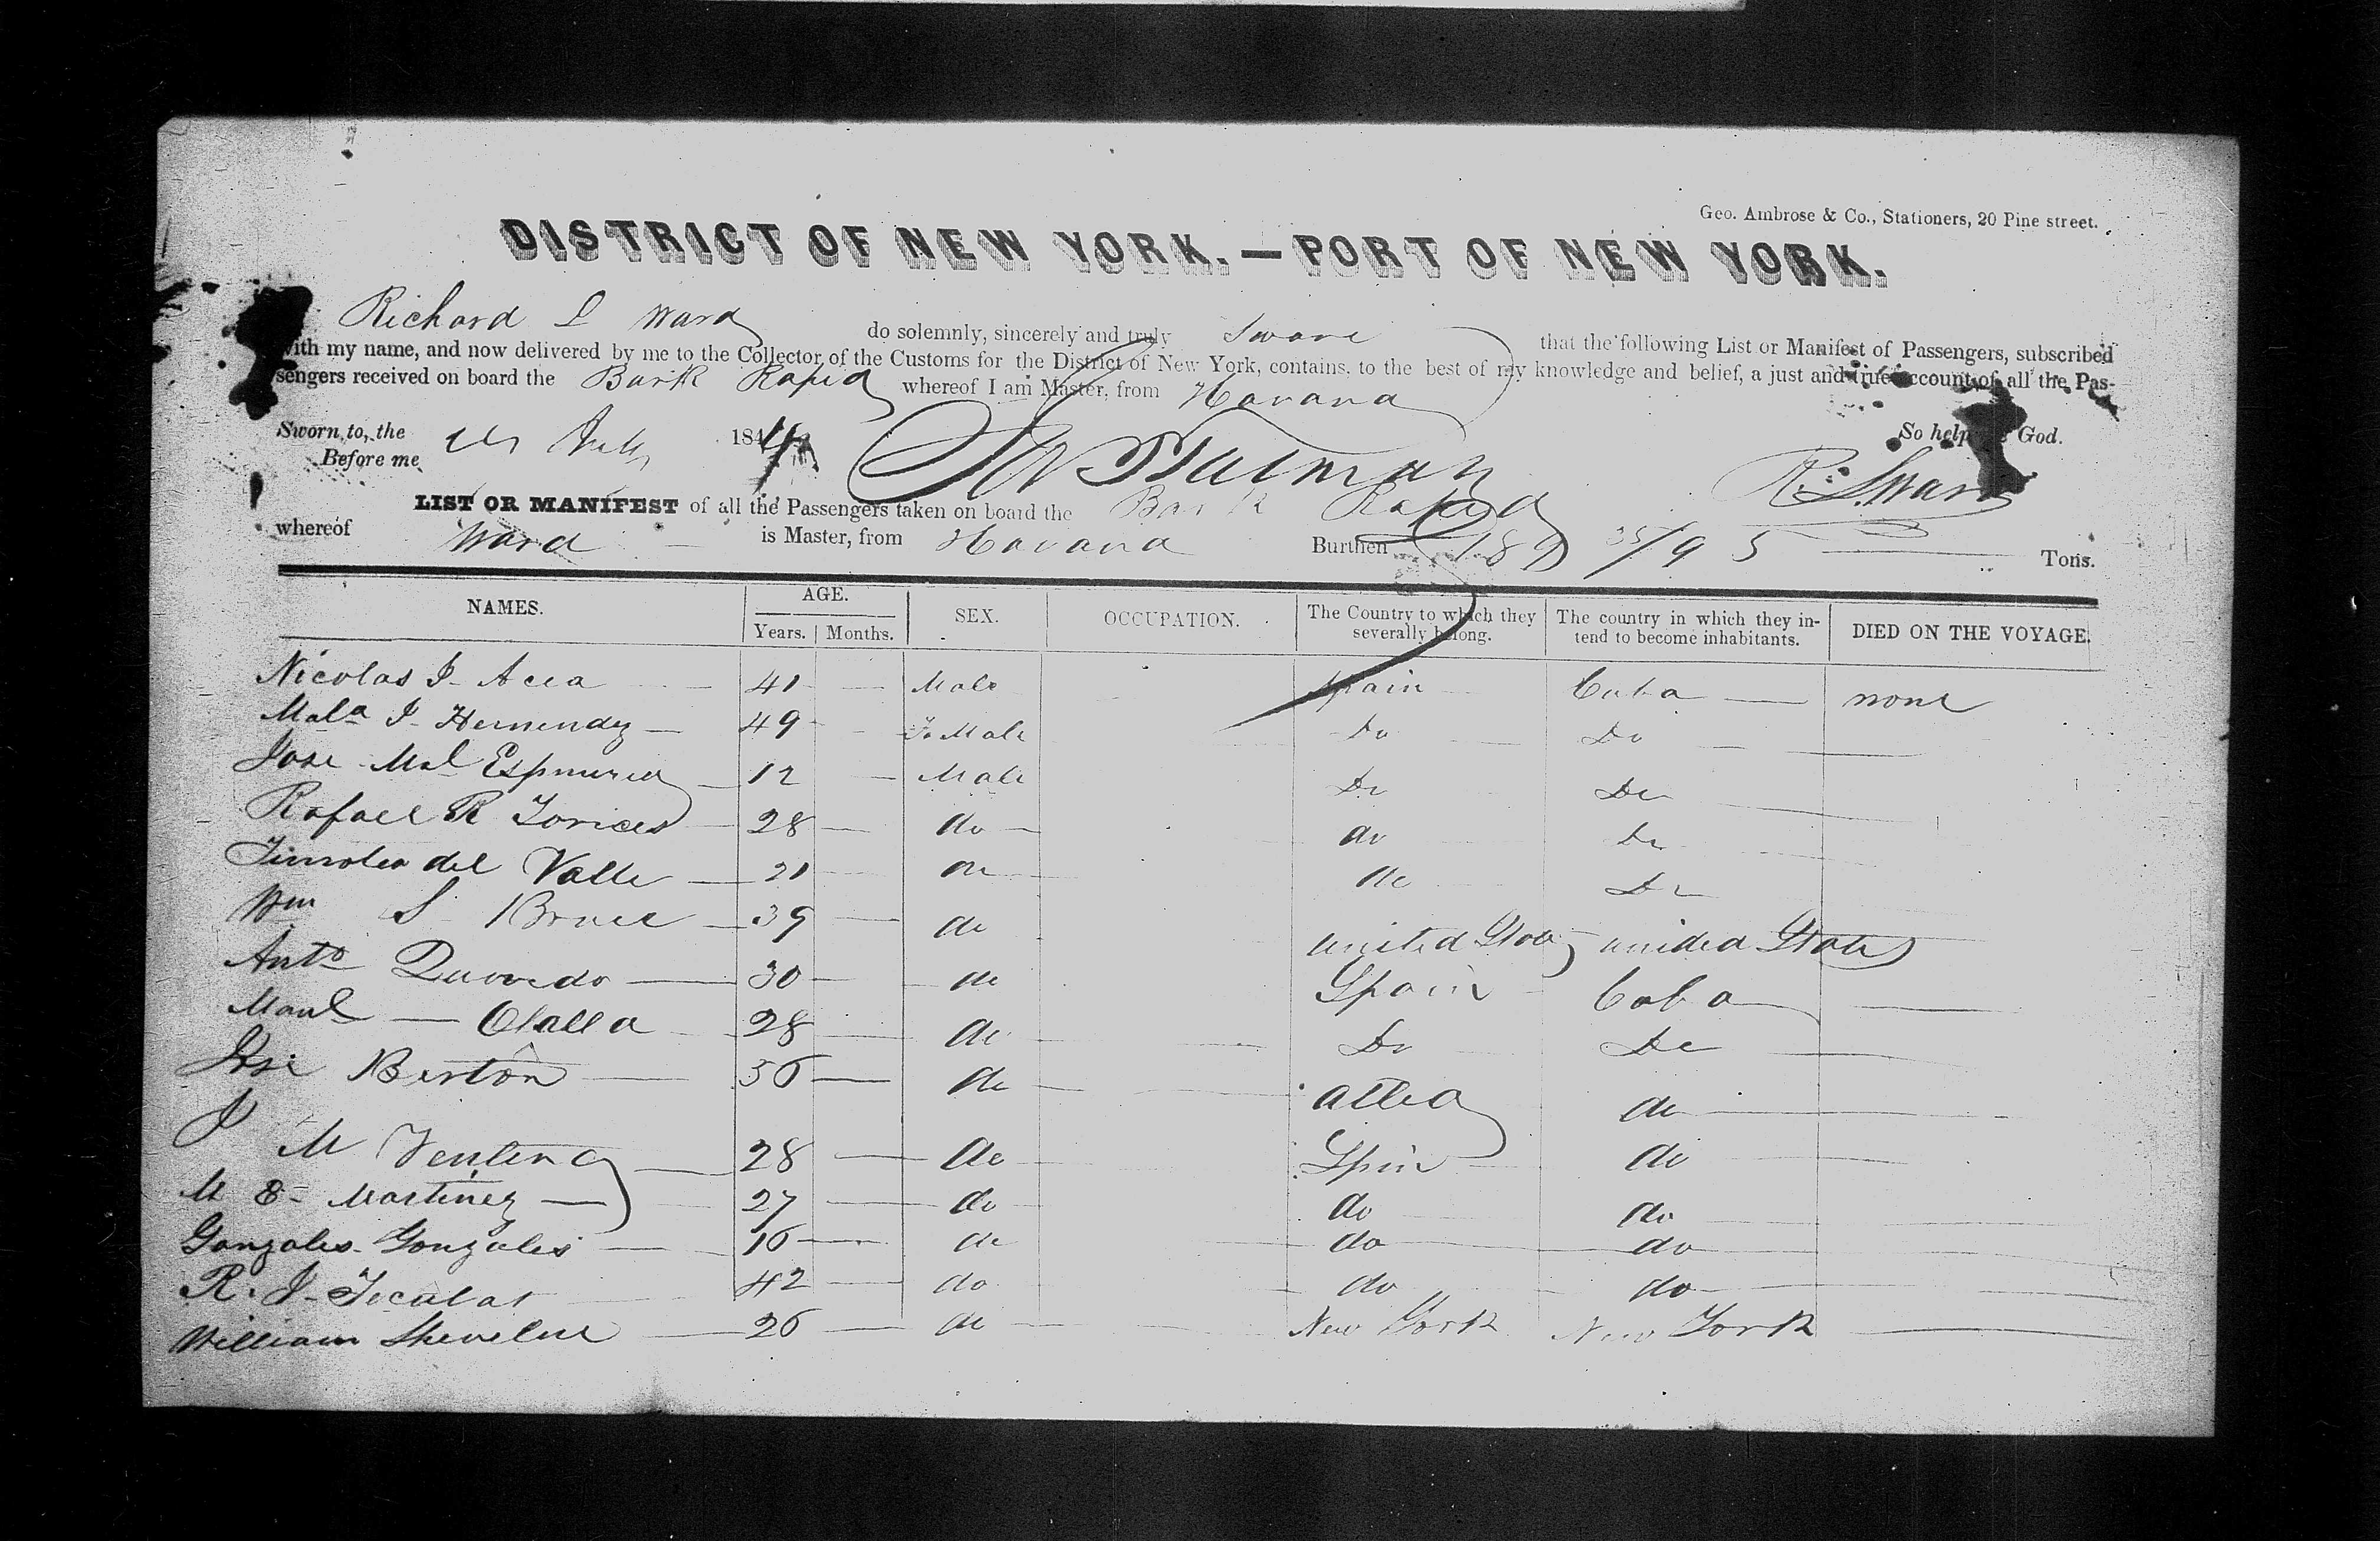 Geo. Ambrose & Co., Stationers, 20 Pine street.
DISTRICT OF NEW YORK.—PORT OF NEW YORK.
Richard L Ward do solemnly, sincerely and truly Swore that the following List or Manifest of Passengers, subscribed
with my name, and now delivered by me to the Collector of the Customs for the District of New York, contains, to the best of my knowledge and belief, a just and true account of all the Pas-
sengers received on board the Bark Rapid whereof I am Master, from Havana
Sworn to, the July 184 So help God.
Before me R. L. Ward
LIST OR MANIFEST of all the Passengers taken on board the Bark Rapid
whereof Ward is Master, from Havana Burthen 189 25/95 Tons.
NAMES. AGE. Years. Months. SEX. OCCUPATION. The Country to which they severally belong. The country in which they intend to become inhabitants. DIED ON THE VOYAGE.
Nicolas J. Acea 41 Male Spain Cuba none
Mala J. Hernendez 49 Fe Male Do Do
Jose Mal 12 Male Do Do
Rafael R Torices 28 do do Do
Timoleo del Valle 21 do do Do
Wm S Bruce 39 do united States united States
Anto Quevedo 30 do Spain Cuba
Manl Olalla 28 do Do Do
Jose Berton 36 do do
J M 28 do Spin do
M E Martinez 27 do do do
Gonzales Gonzales 16 do do do
R. J. 42 do do do
William 26 do New York New York